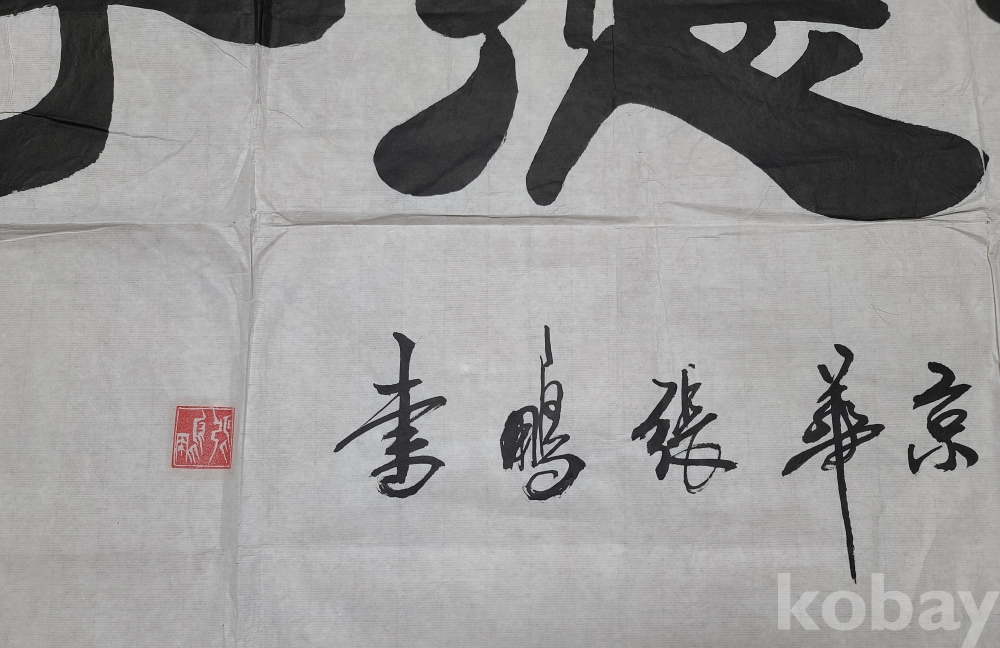 京華張鵬書
張鵬
kobay